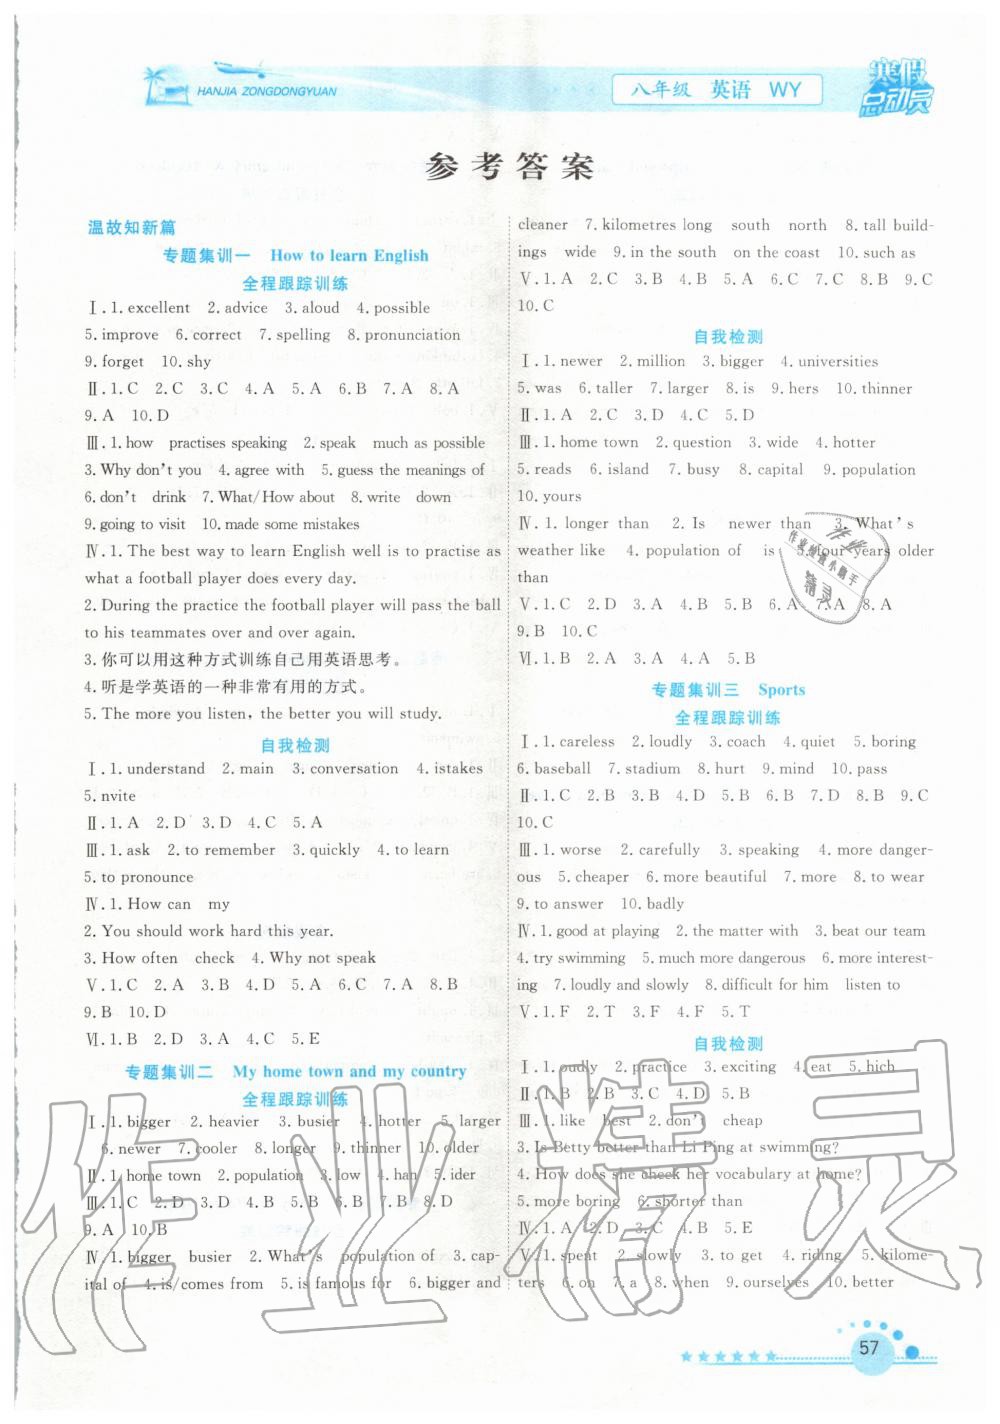 HANJIA ZONGDONGYUAN
八年级 英语 WY
寒假
总动员
参考答案
温故知新篇
专题集训一 How to learn English
全程跟踪训练
Ⅰ. 1. excellent 2. advice 3. aloud 4. possible
5. improve 6. correct 7. spelling 8. pronunciation
9. forget 10. shy
Ⅱ. 1. C 2. C 3. C 4. A 5. A 6. B 7. A 8. A
9. A 10. D
Ⅲ. 1. how practises speaking 2. speak much as possible
3. Why don't you 4. agree with 5. guess the meanings of
6. don't drink 7. What/How about 8. write down
9. going to visit 10. made some mistakes
Ⅳ. 1. The best way to learn English well is to practise as
what a football player does every day.
2. During the practice the football player will pass the ball
to his teammates over and over again.
3. 你可以用这种方式训练自己用英语思考。
4. 听是学英语的一种非常有用的方式。
5. The more you listen, the better you will study.
自我检测
Ⅰ. 1. understand 2. main 3. conversation 4. istakes
5. nvite
Ⅱ. 1. A 2. D 3. D 4. C 5. A
Ⅲ. 1. ask 2. to remember 3. quickly 4. to learn
5. to pronounce
Ⅳ. 1. How can my
2. You should work hard this year.
3. How often check 4. Why not speak
Ⅴ. 1. C 2. A 3. B 4. D 5. A 6. C 7. A 8. B
9. B 10. D
Ⅵ. 1. B 2. D 3. A 4. C 5. E
专题集训二 My home town and my country
全程跟踪训练
Ⅰ. 1. bigger 2. heavier 3. busier 4. hotter 5. larger
6. newer 7. cooler 8. longer 9. thinner 10. older
Ⅱ. 1. home town 2. population 3. low 4. han 5. ider
Ⅲ. 1. C 2. D 3. D 4. B 5. B 6. B 7. B 8. D
9. A 10. B
Ⅳ. 1. bigger busier 2. What's population of 3. cap-
ital of 4. is/comes from 5. is famous for 6. bigger and
cleaner 7. kilometres long south north 8. tall build-
ings wide 9. in the south on the coast 10. such as
Ⅴ. 1. A 2. C 3. B 4. B 5. A 6. C 7. C 8. B 9. C
10. C
自我检测
Ⅰ. 1. newer 2. million 3. bigger 4. universities
5. was 6. taller 7. larger 8. is 9. hers 10. thinner
Ⅱ. 1. A 2. C 3. D 4. C 5. D
Ⅲ. 1. home town 2. question 3. wide 4. hotter
5. reads 6. island 7. busy 8. capital 9. population
10. yours
Ⅳ. 1. longer than 2. Is newer than 3. What's
weather like 4. population of is 5. four years older
than
Ⅴ. 1. C 2. D 3. A 4. A 5. B 6. A 7. A 8. A
9. B 10. C
Ⅵ. 1. B 2. A 3. A 4. A 5. B
专题集训三 Sports
全程跟踪训练
Ⅰ. 1. careless 2. loudly 3. coach 4. quiet 5. boring
6. baseball 7. stadium 8. hurt 9. mind 10. pass
Ⅱ. 1. C 2. B 3. B 4. D 5. B 6. B 7. D 8. B 9. C
10. C
Ⅲ. 1. worse 2. carefully 3. speaking 4. more danger-
ous 5. cheaper 6. more beautiful 7. more 8. to wear
9. to answer 10. badly
Ⅳ. 1. good at playing 2. the matter with 3. beat our team
4. try swimming 5. much more dangerous 6. more interest-
ing 7. loudly and slowly 8. difficult for him listen to
Ⅴ. 1. F 2. T 3. F 4. F 5. T
自我检测
Ⅰ. 1. oudly 2. practice 3. exciting 4. eat 5. hich
Ⅱ. 1. B 2. B 3. C 4. D 5. B
Ⅲ. 1. like best 2. don't cheap
3. Is Betty better than Li Ping at swimming?
4. How does she check her vocabulary at home?
5. more boring 6. shorter than
Ⅳ. 1. A 2. D 3. C 4. B 5. E
Ⅴ. 1. spent 2. slowly 3. to get 4. riding 5. kilome-
ters 6. on 7. a 8. when 9. ourselves 10. better
作业精灵
57